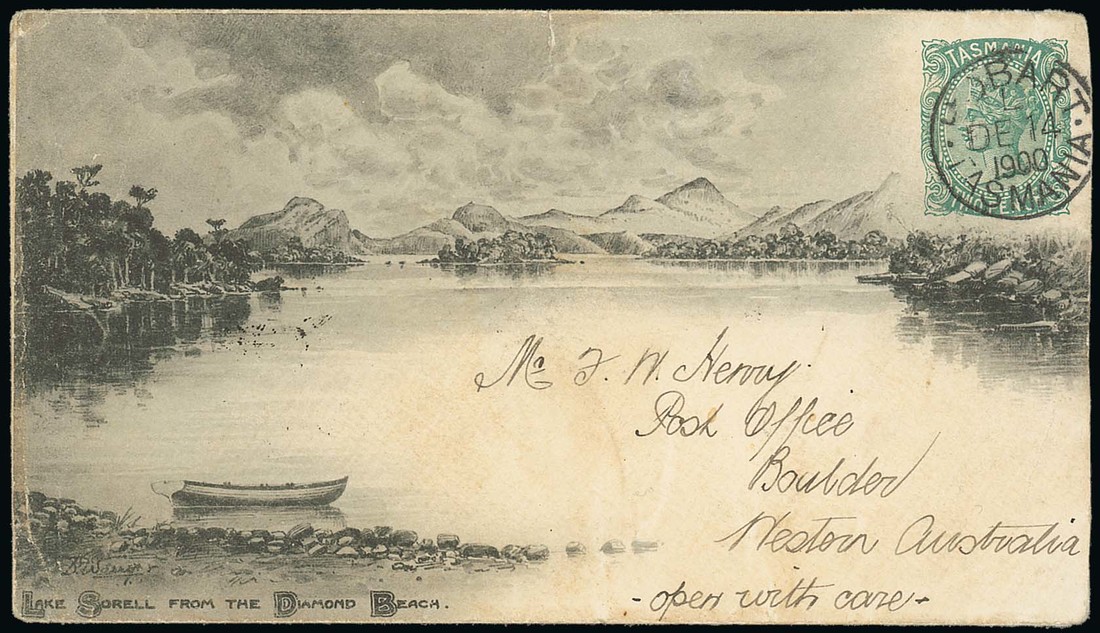 TASMANIA
HOBART · TASMANIA ·
DE 14
1900
Mr F. W. Hervy
Post Office
Boulder
Western Australia
- open with care -
LAKE SORELL FROM THE DIAMOND BEACH.